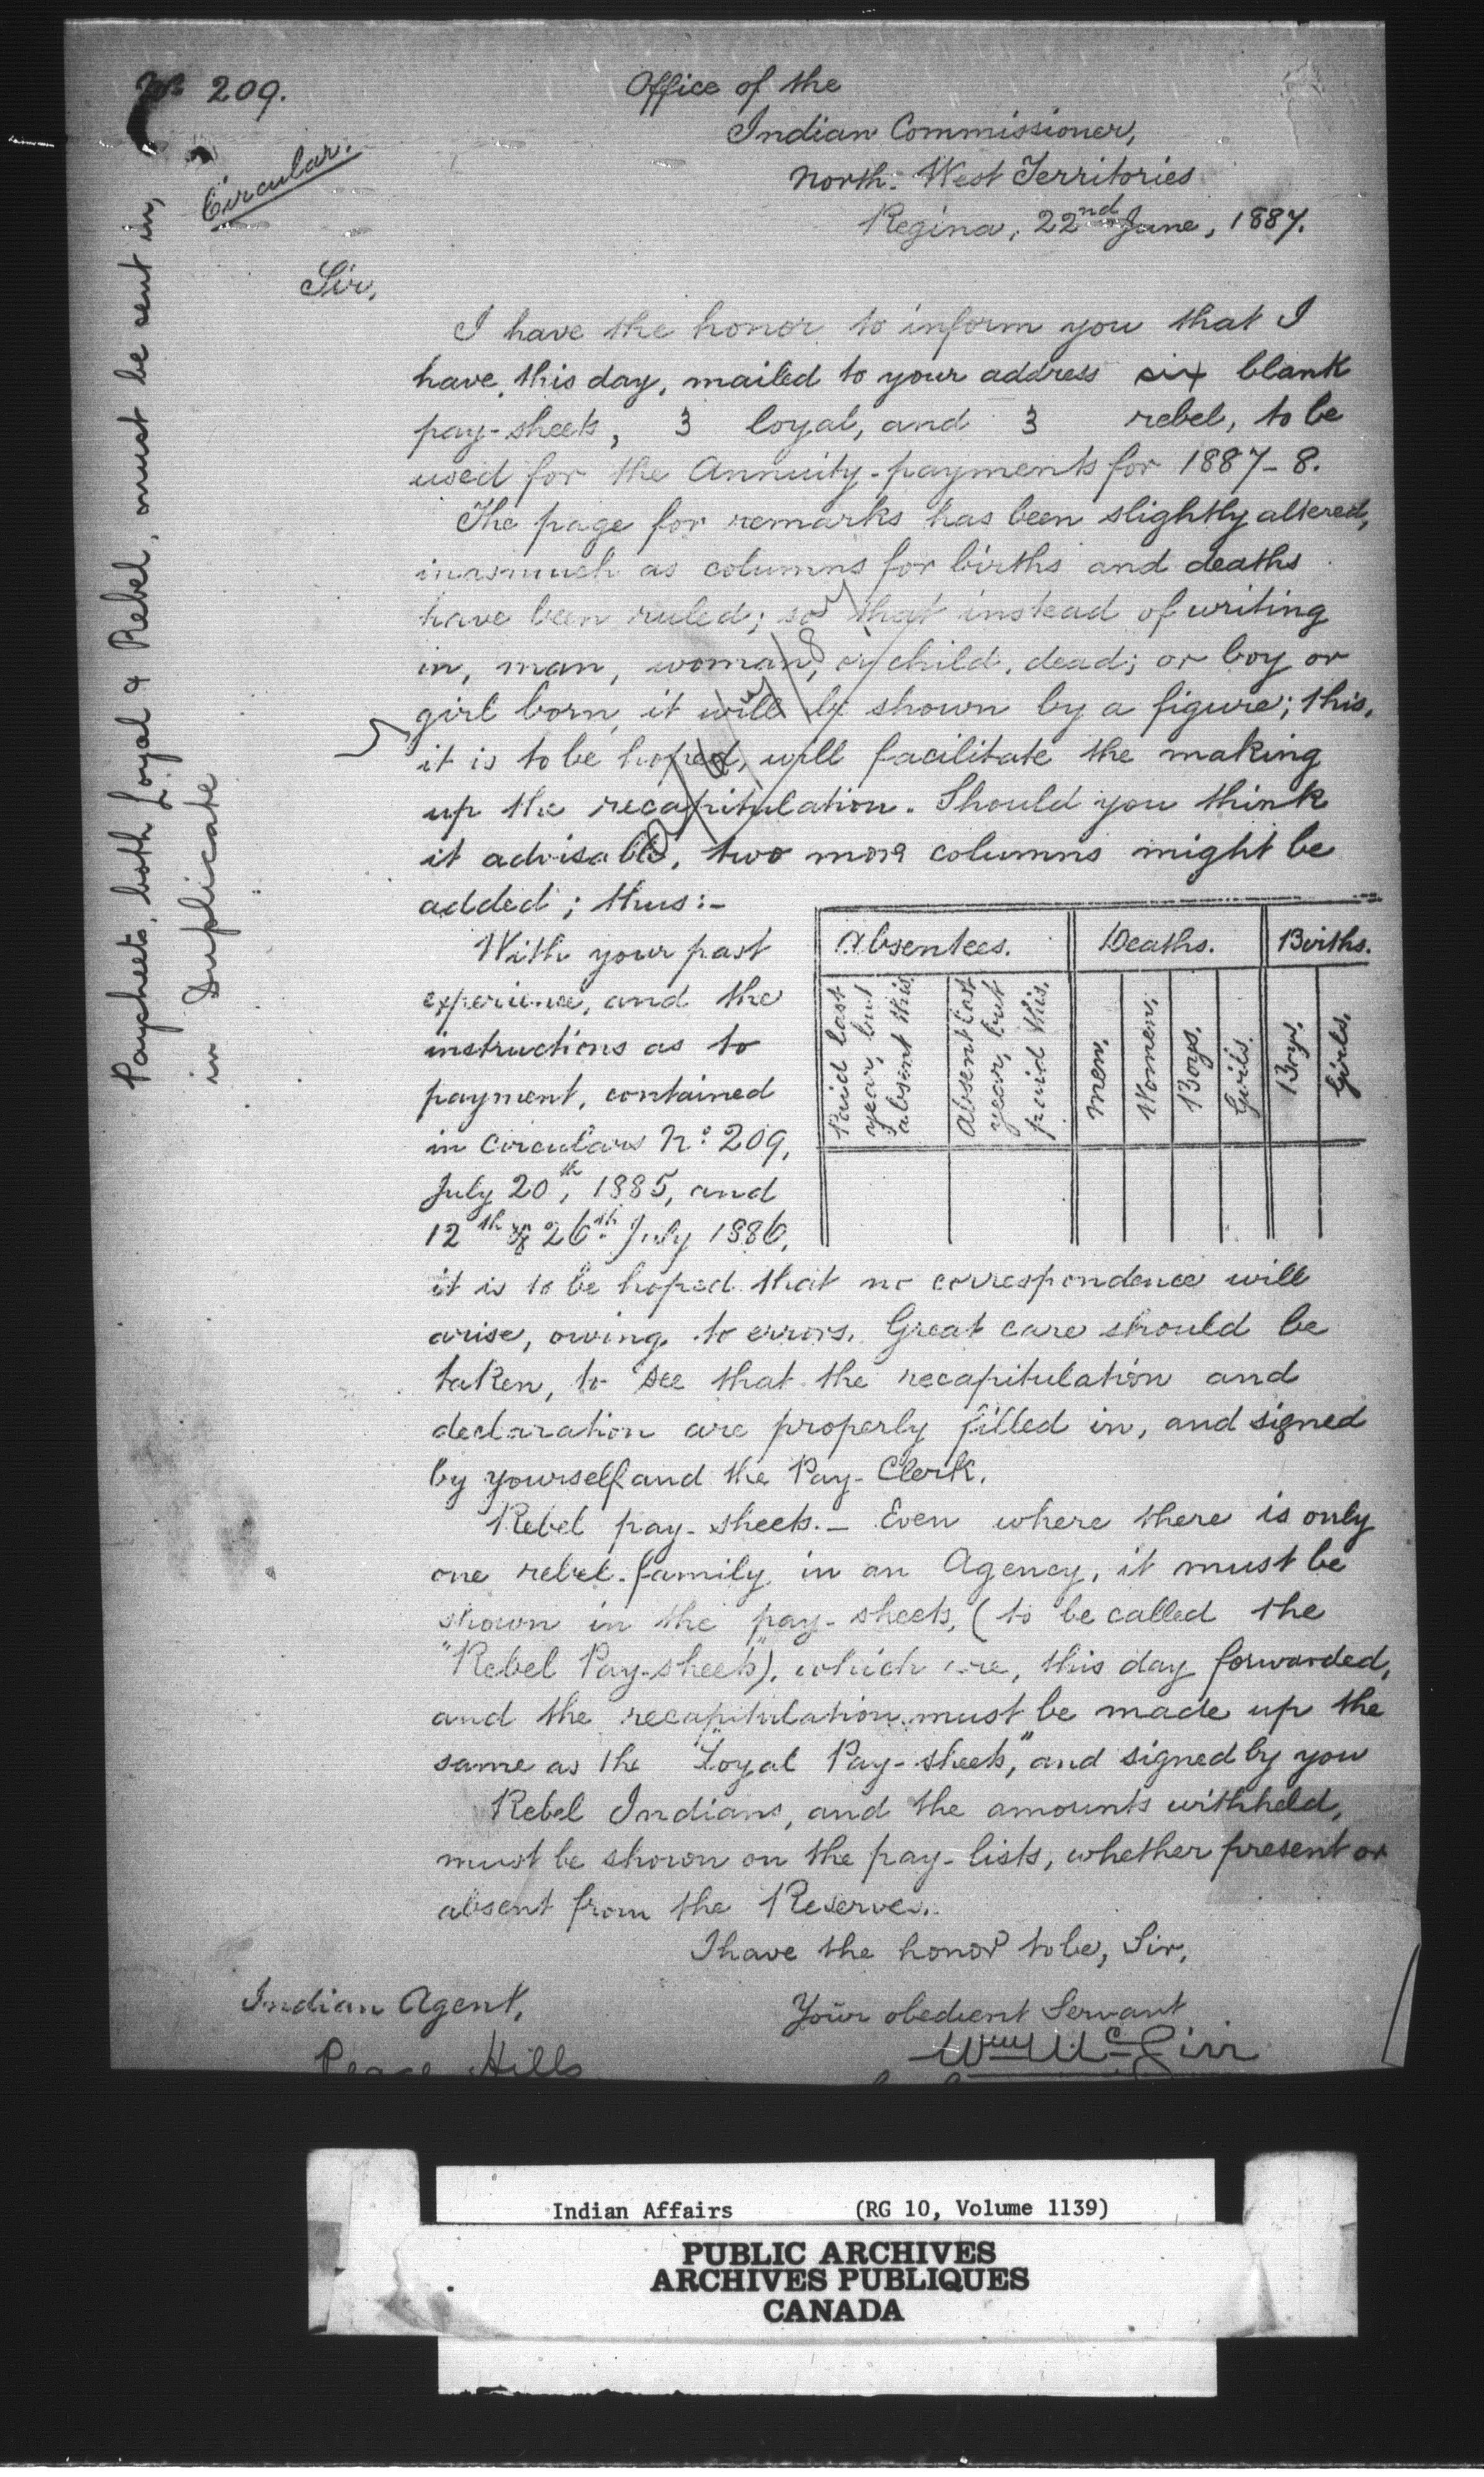 No 209.
Circular.
Office of the
Indian Commissioner,
North-West Territories
Regina, 22nd June, 1887.
Paysheets, both Loyal & Rebel, must be sent in,
in Duplicate
Sir,
I have the honor to inform you that I
have, this day, mailed to your address six blank
pay-sheets, 3 loyal, and 3 rebel, to be
used for the Annuity-payments for 1887-8.
The page for remarks has been slightly altered,
inasmuch as columns for births and deaths
have been ruled; so that instead of writing
in, man, woman, or child, dead; or boy or
girl born, it will be shown by a figure; this,
it is to be hoped, will facilitate the making
up the recapitulation. Should you think
it advisable, two more columns might be
added; thus:-
With your past
experience, and the
instructions as to
payment, contained
in circulars No. 209,
July 20th, 1885, and
12th & 26th July 1886,
Absentees. Deaths. Births.
Paid last year, but absent this.
Absent last year, but paid this.
Men.
Women.
Boys.
Girls.
Boys.
Girls.
it is to be hoped that no correspondence will
arise, owing to errors. Great care should be
taken, to see that the recapitulation and
declaration are properly filled in, and signed
by yourself and the Pay-Clerk.
Rebel pay-sheets.- Even where there is only
one rebel-family in an Agency, it must be
shown in the pay-sheets, (to be called the
"Rebel Pay-sheets"), which are, this day forwarded,
and the recapitulation must be made up the
same as the "Loyal Pay-sheets," and signed by you
Rebel Indians, and the amounts withheld,
must be shown on the pay-lists, whether present or
absent from the Reserve.
I have the honor to be, Sir,
Your obedient Servant
Wm McGirr
Indian Agent,
Peace Hills
Indian Affairs (RG 10, Volume 1139)
PUBLIC ARCHIVES
ARCHIVES PUBLIQUES
CANADA